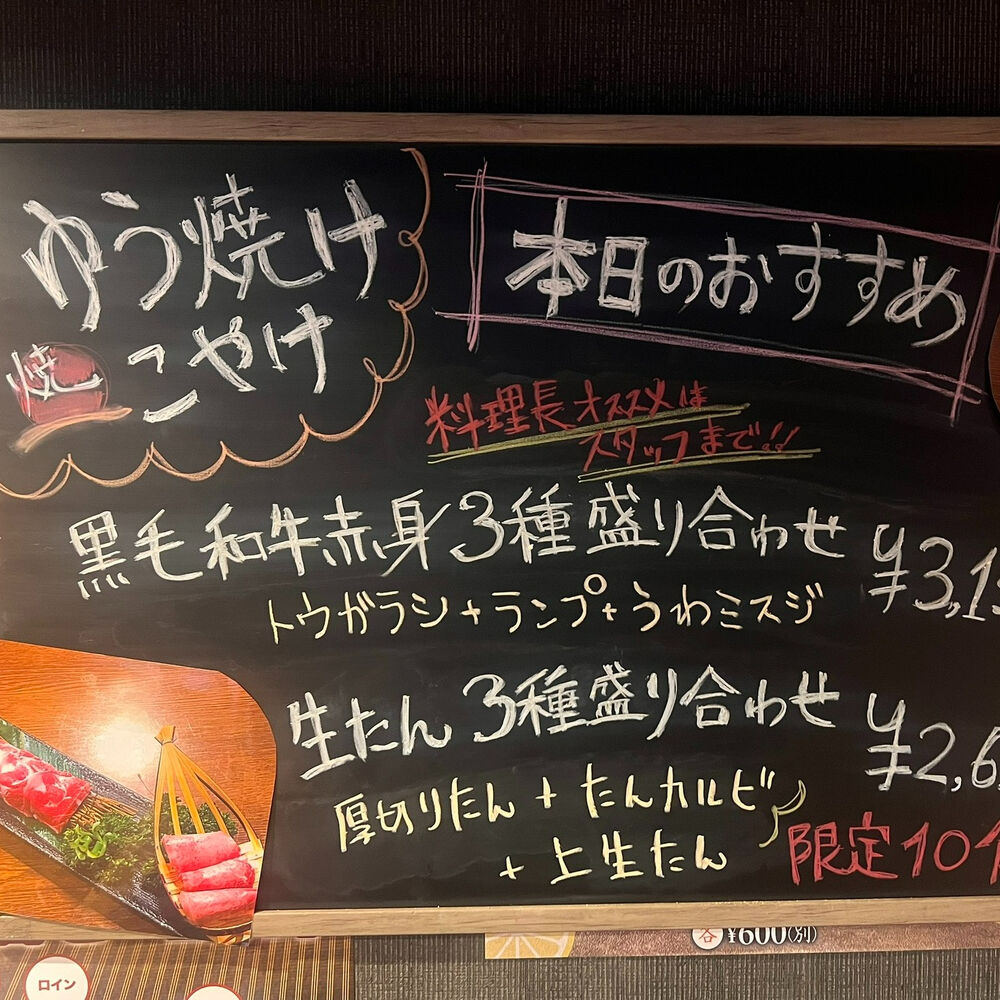 ゆう焼け
こやけ
焼
本日のおすすめ
料理長オススメは
スタッフまで!!
黒毛和牛赤身3種盛り合わせ ¥3,1
トウガラシ+ランプ+うわミスジ
生たん3種盛り合わせ ¥2,6
厚切りたん + たんカルビ
+ 上生たん
限定10
各 ¥600(別)
ロイン